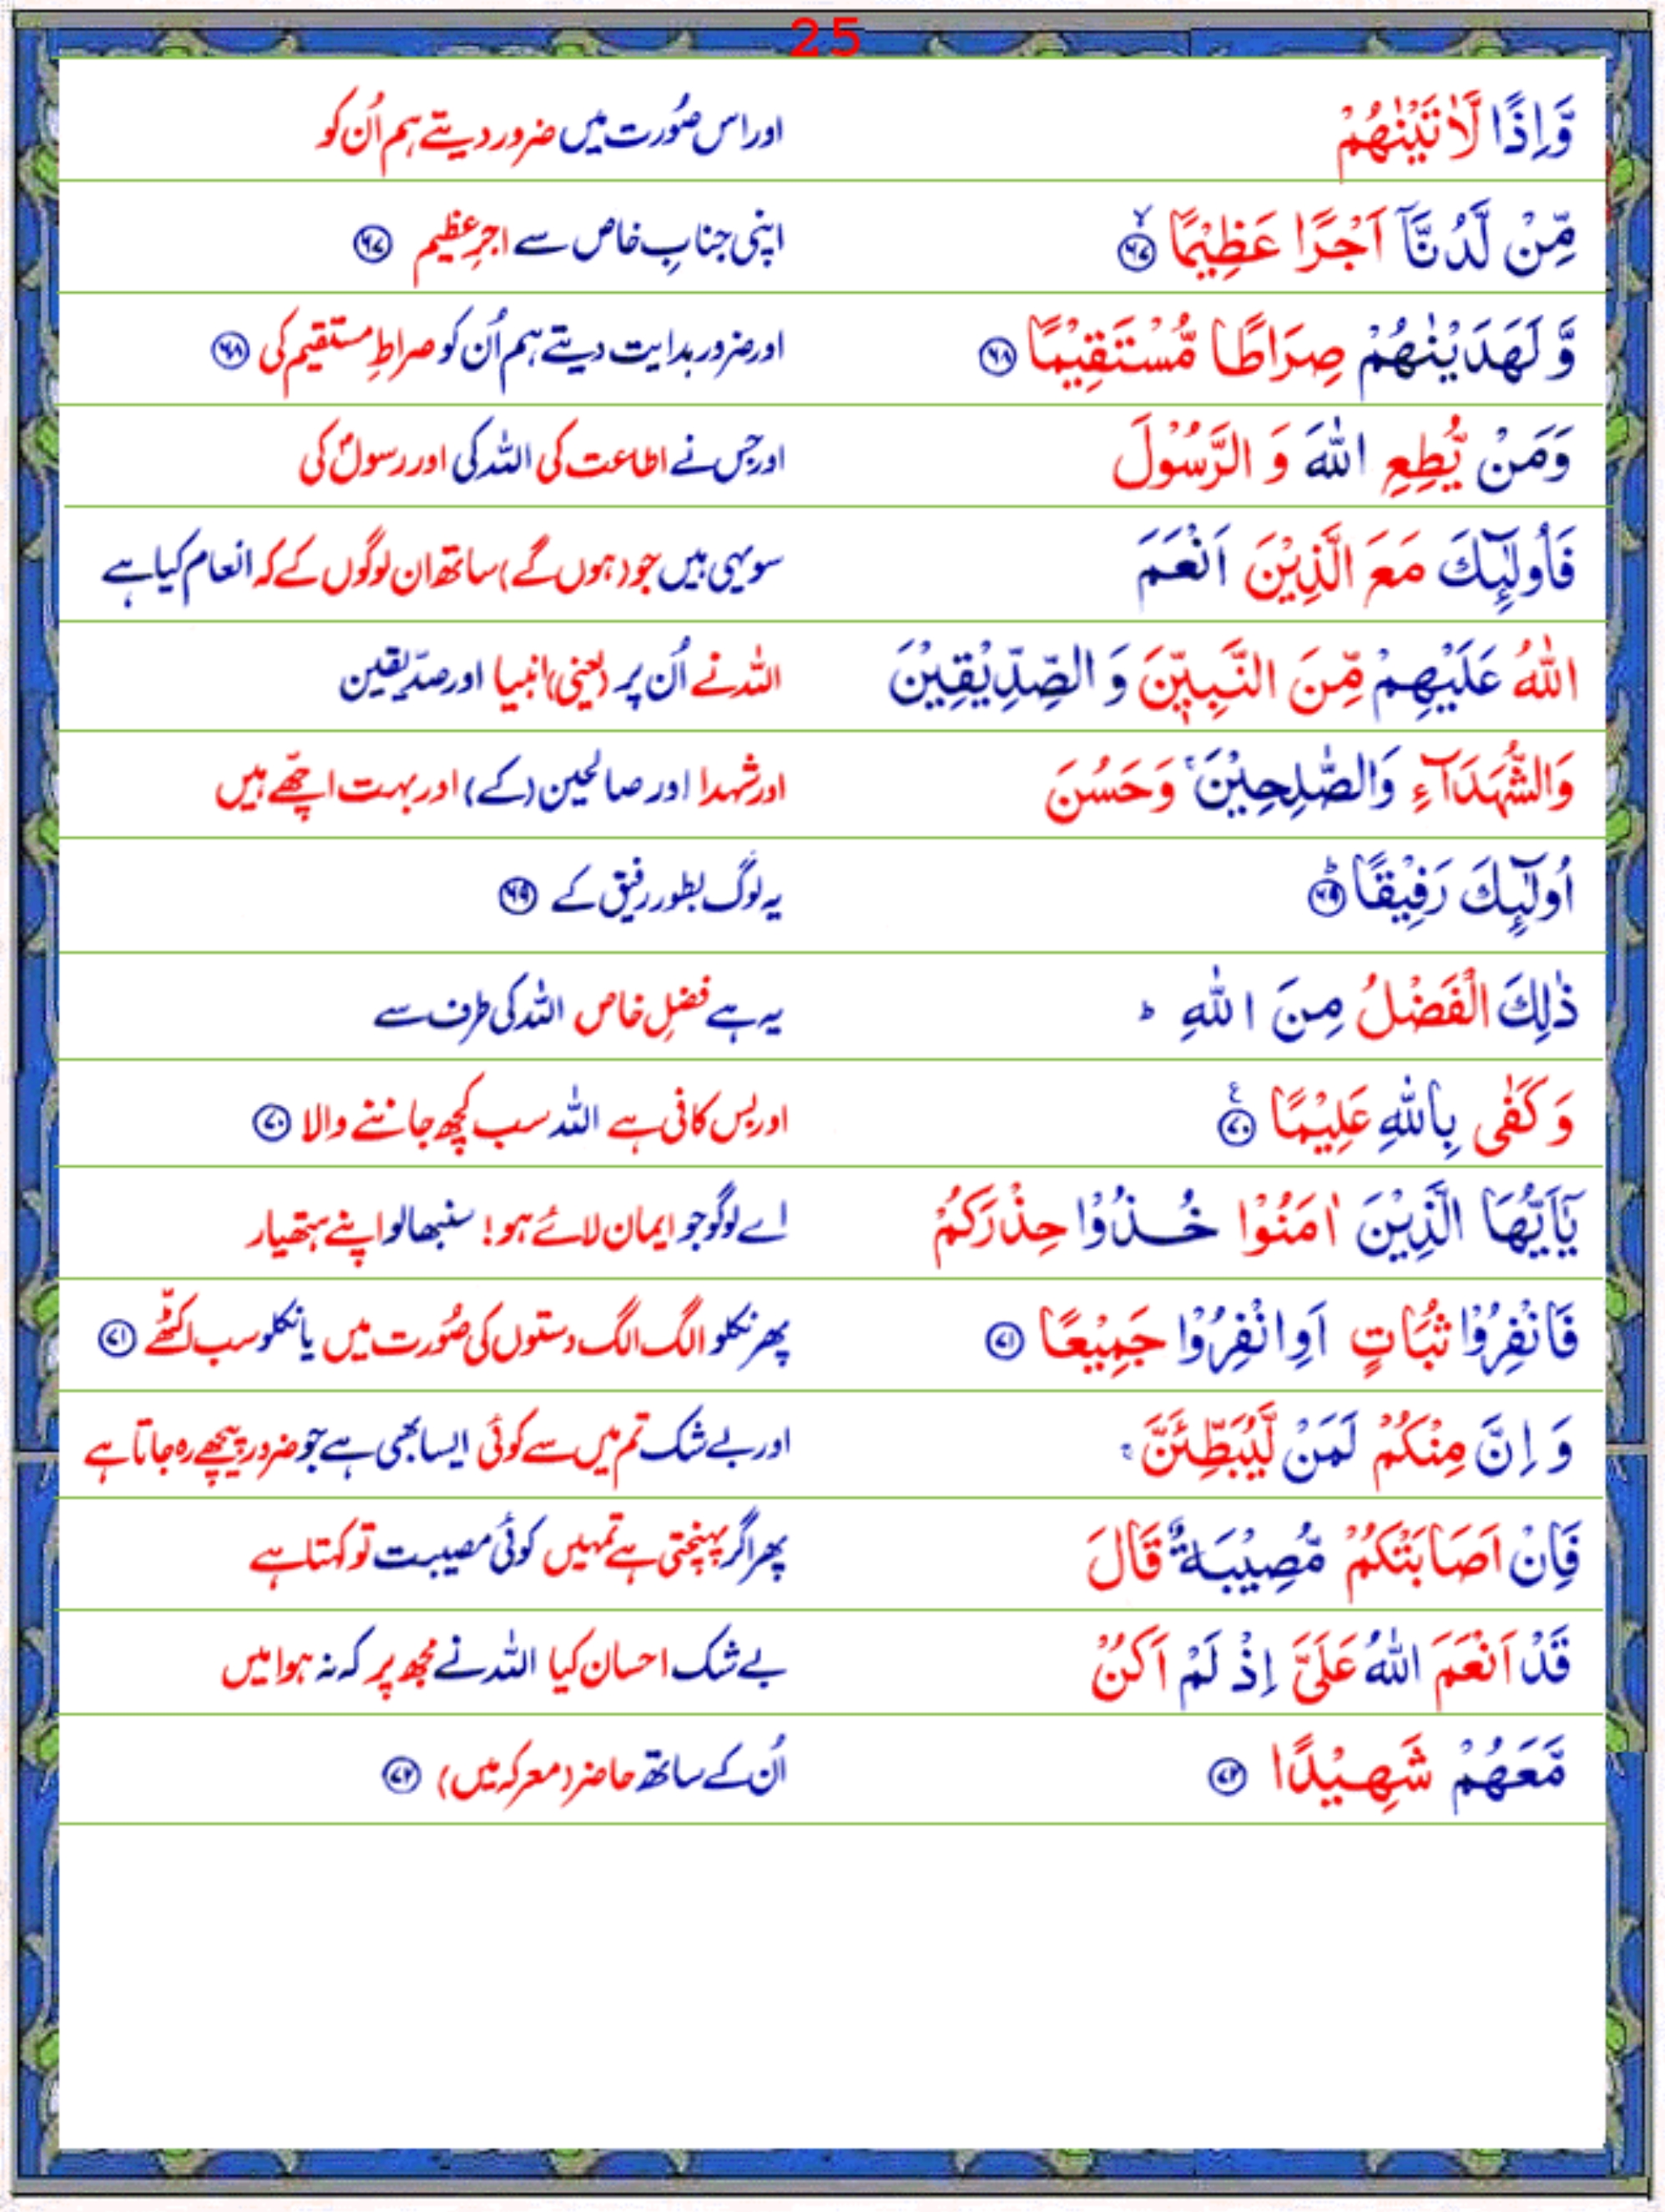 25
وَّاِذًا لَّاٰتَيْنٰهُمْ اور اس صُورت میں ضرور دیتے ہم اُن کو
مِّنْ لَّدُنَّآ اَجْرًا عَظِيْمًا ۙ ﴿۶۷﴾ اپنی جنابِ خاص سے اجرِ عظیم ﴿۶۷﴾
وَّ لَهَدَيْنٰهُمْ صِرَاطًا مُّسْتَقِيْمًا ﴿۶۸﴾ اور ضرور ہدایت دیتے ہم اُن کو صراطِ مستقیم کی ﴿۶۸﴾
وَمَنْ يُّطِعِ اللّٰهَ وَ الرَّسُوْلَ اور جس نے اطاعت کی اللہ کی اور رسولؐ کی
فَاُولٰٓئِكَ مَعَ الَّذِيْنَ اَنْعَمَ سو یہی ہیں جو (ہوں گے) ساتھ ان لوگوں کے کہ انعام کیا ہے
اللّٰهُ عَلَيْهِمْ مِّنَ النَّبِيّٖنَ وَ الصِّدِّيْقِيْنَ اللہ نے اُن پر (یعنی) انبیا اور صدّیقین
وَالشُّهَدَآءِ وَالصّٰلِحِيْنَ ۚ وَحَسُنَ اور شہدا اور صالحین (کے) اور بہت اچّھے ہیں
اُولٰٓئِكَ رَفِيْقًا ؕ ﴿۶۹﴾ یہ لوگ بطور رفیق کے ﴿۶۹﴾
ذٰلِكَ الْفَضْلُ مِنَ اللّٰهِ ؕ یہ ہے فضلِ خاص اللہ کی طرف سے
وَ كَفٰى بِاللّٰهِ عَلِيْمًا ﴿۷۰﴾ ع اور بس کافی ہے اللہ سب کچھ جاننے والا ﴿۷۰﴾
يٰٓاَيُّهَا الَّذِيْنَ اٰمَنُوْا خُذُوْا حِذْرَكُمْ اے لوگو جو ایمان لائے ہو! سنبھالو اپنے ہتھیار
فَانْفِرُوْا ثُبَاتٍ اَوِ انْفِرُوْا جَمِيْعًا ﴿۷۱﴾ پھر نکلو الگ الگ دستوں کی صُورت میں یا نکلو سب اکٹّھے ﴿۷۱﴾
وَ اِنَّ مِنْكُمْ لَمَنْ لَّيُبَطِّئَنَّ ۚ اور بے شک تم میں سے کوئی ایسا بھی ہے جو ضرور پیچھے رہ جاتا ہے
فَاِنْ اَصَابَتْكُمْ مُّصِيْبَةٌ قَالَ پھر اگر پہنچتی ہے تمہیں کوئی مصیبت تو کہتا ہے
قَدْ اَنْعَمَ اللّٰهُ عَلَىَّ اِذْ لَمْ اَكُنْ بے شک احسان کیا اللہ نے مجھ پر کہ نہ ہوا میں
مَّعَهُمْ شَهِيْدًا ﴿۷۲﴾ اُن کے ساتھ حاضر (معرکہ میں) ﴿۷۲﴾